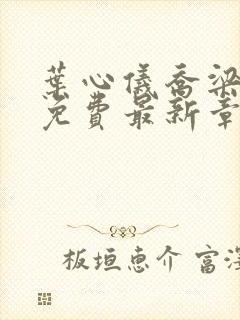 葉心儀喬梁
免費最新章
板垣恵介 富渓